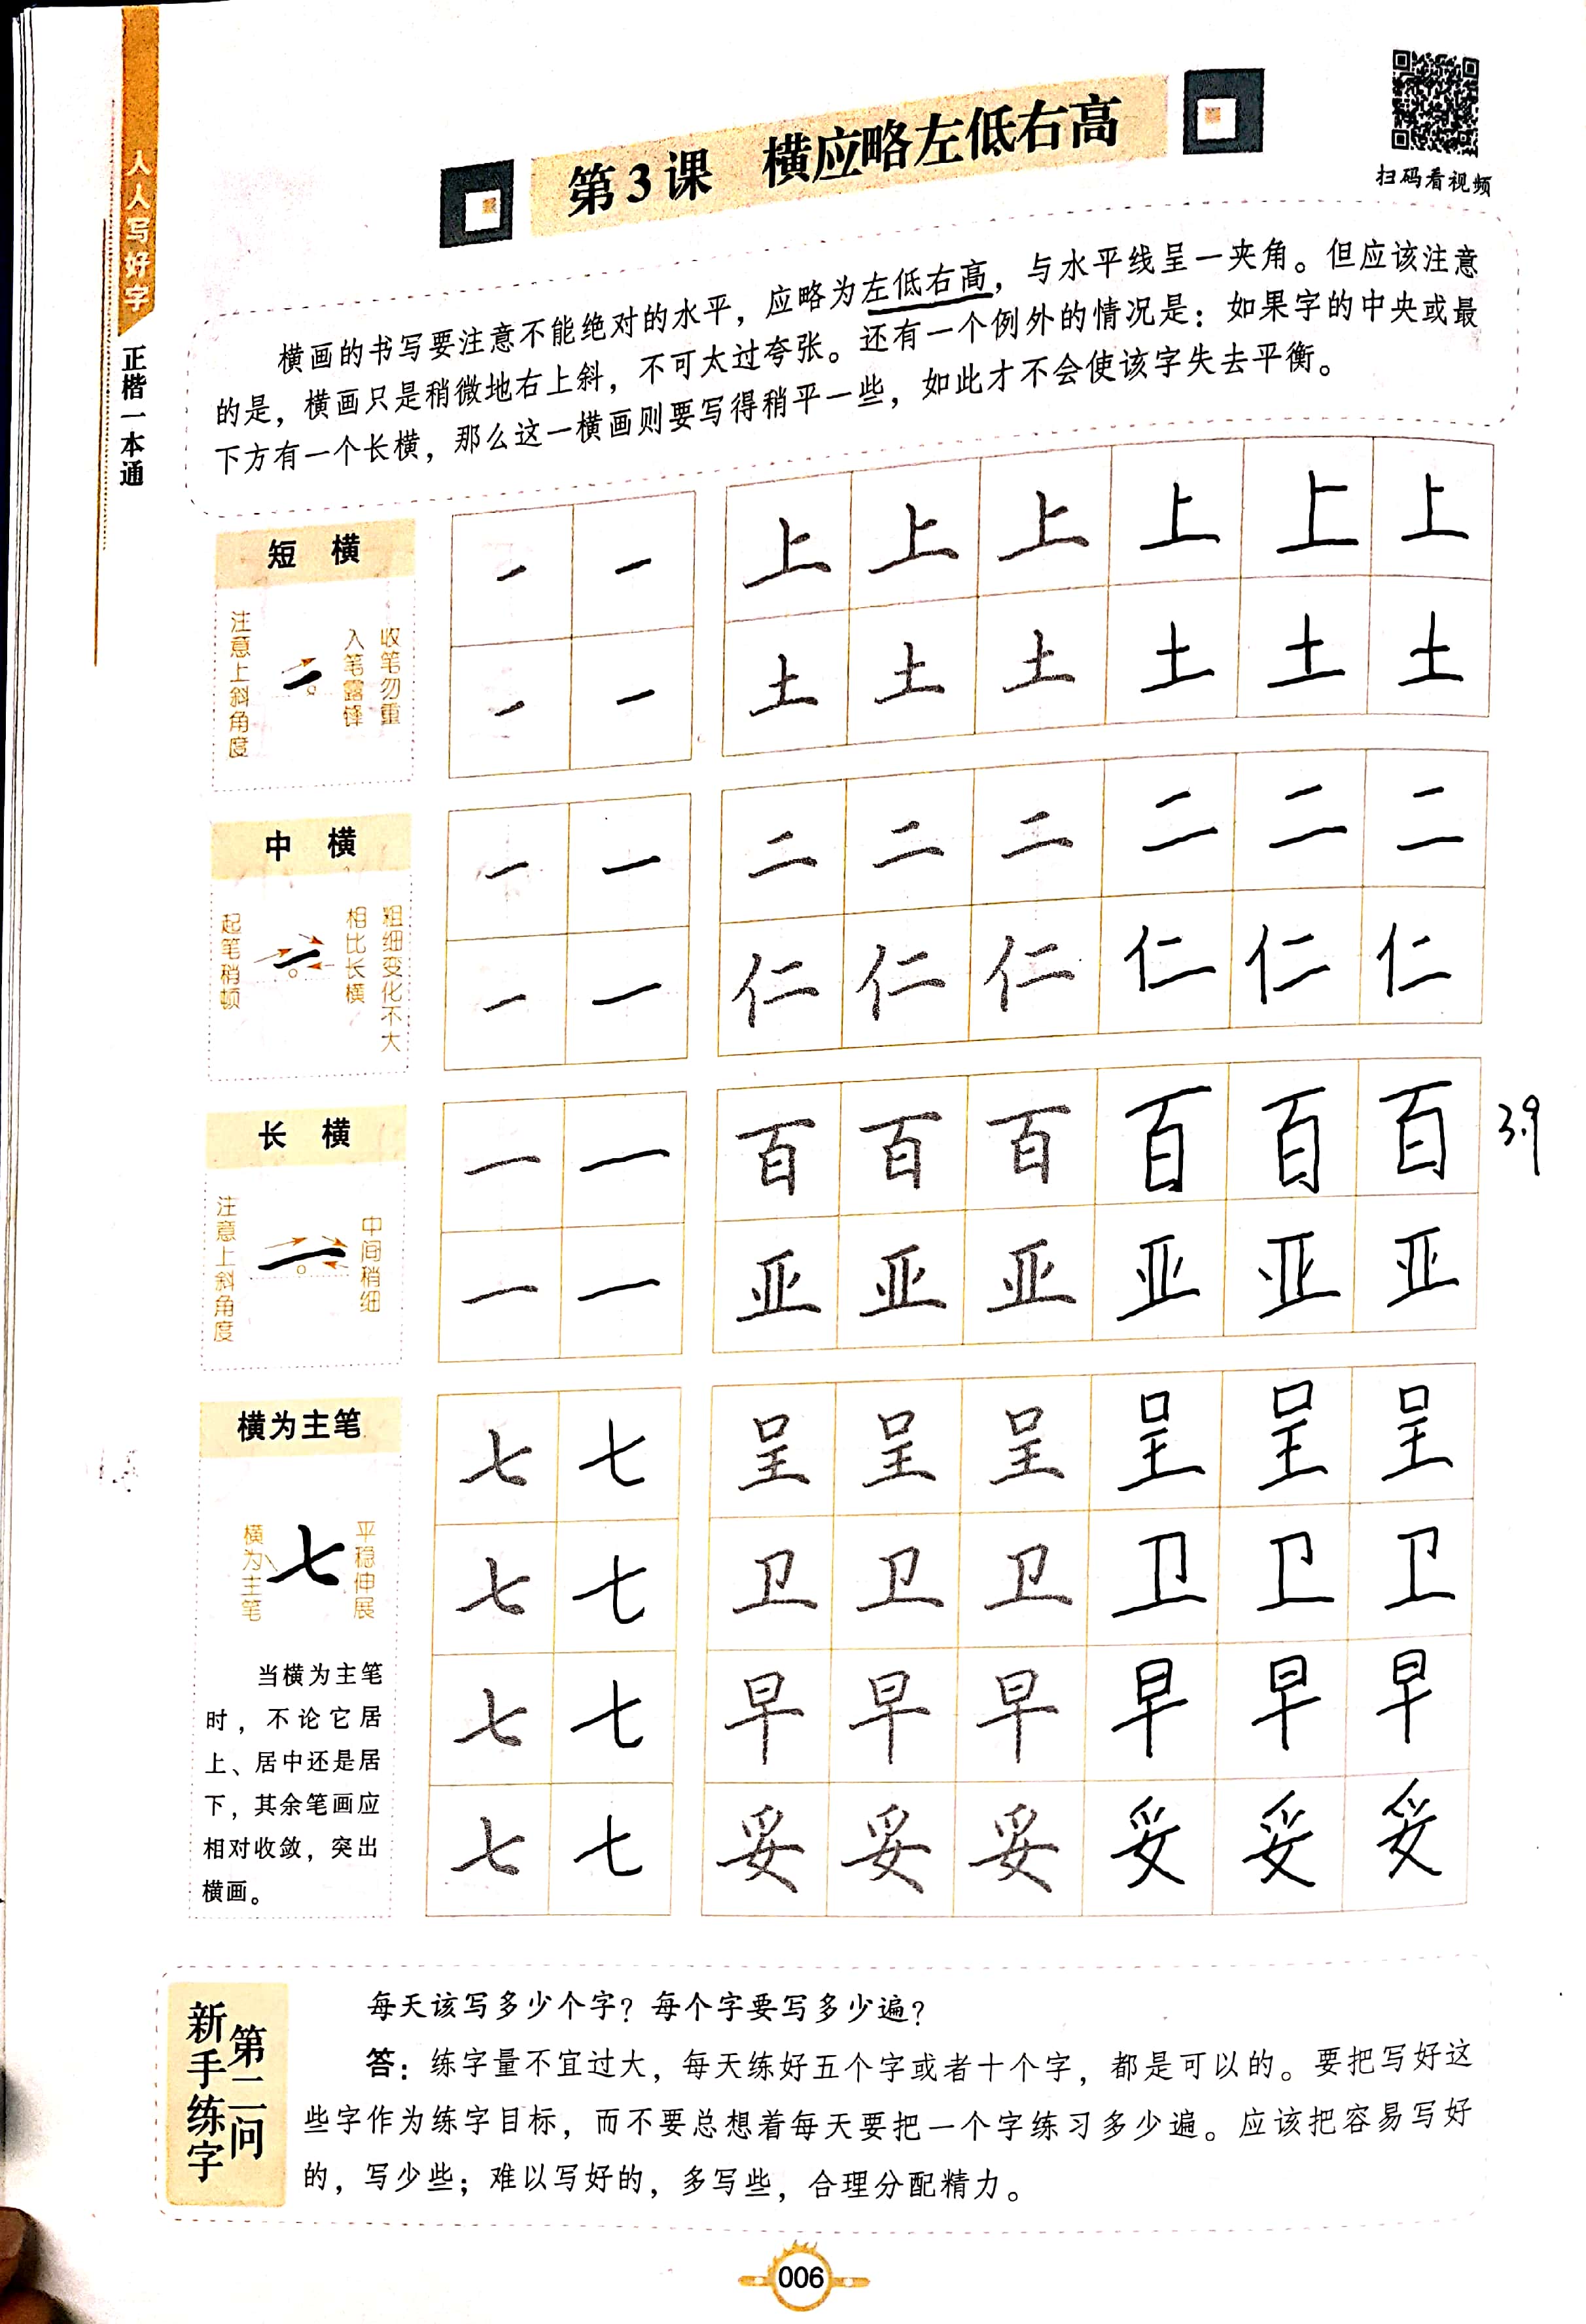 人人写好字
正楷一本通
第3课 横应略左低右高
扫码看视频
横画的书写要注意不能绝对的水平，应略为左低右高，与水平线呈一夹角。但应该注意
的是，横画只是稍微地右上斜，不可太过夸张。还有一个例外的情况是：如果字的中央或最
下方有一个长横，那么这一横画则要写得稍平一些，如此才不会使该字失去平衡。
短横
注意上斜角度
入笔露锋
收笔勿重
一 一 上 上 上 上 上 上
一 一 土 土 土 土 土 土
中横
起笔稍顿
相比长横
粗细变化不大
一 一 二 二 二 二 二 二
一 一 仁 仁 仁 仁 仁 仁
长横
注意上斜角度
中间稍细
一 一 百 百 百 百 百 百
3.9
一 一 亚 亚 亚 亚 亚 亚
横为主笔
横为主笔
七
平稳伸展
当横为主笔
时，不论它居
上、居中还是居
下，其余笔画应
相对收敛，突出
横画。
七 七 呈 呈 呈 呈 呈 呈
七 七 卫 卫 卫 卫 卫 卫
七 七 早 早 早 早 早 早
七 七 妥 妥 妥 妥 妥 妥
新手练字
第二问
每天该写多少个字？每个字要写多少遍？
答：练字量不宜过大，每天练好五个字或者十个字，都是可以的。要把写好这
些字作为练字目标，而不要总想着每天要把一个字练习多少遍。应该把容易写好
的，写少些；难以写好的，多写些，合理分配精力。
006